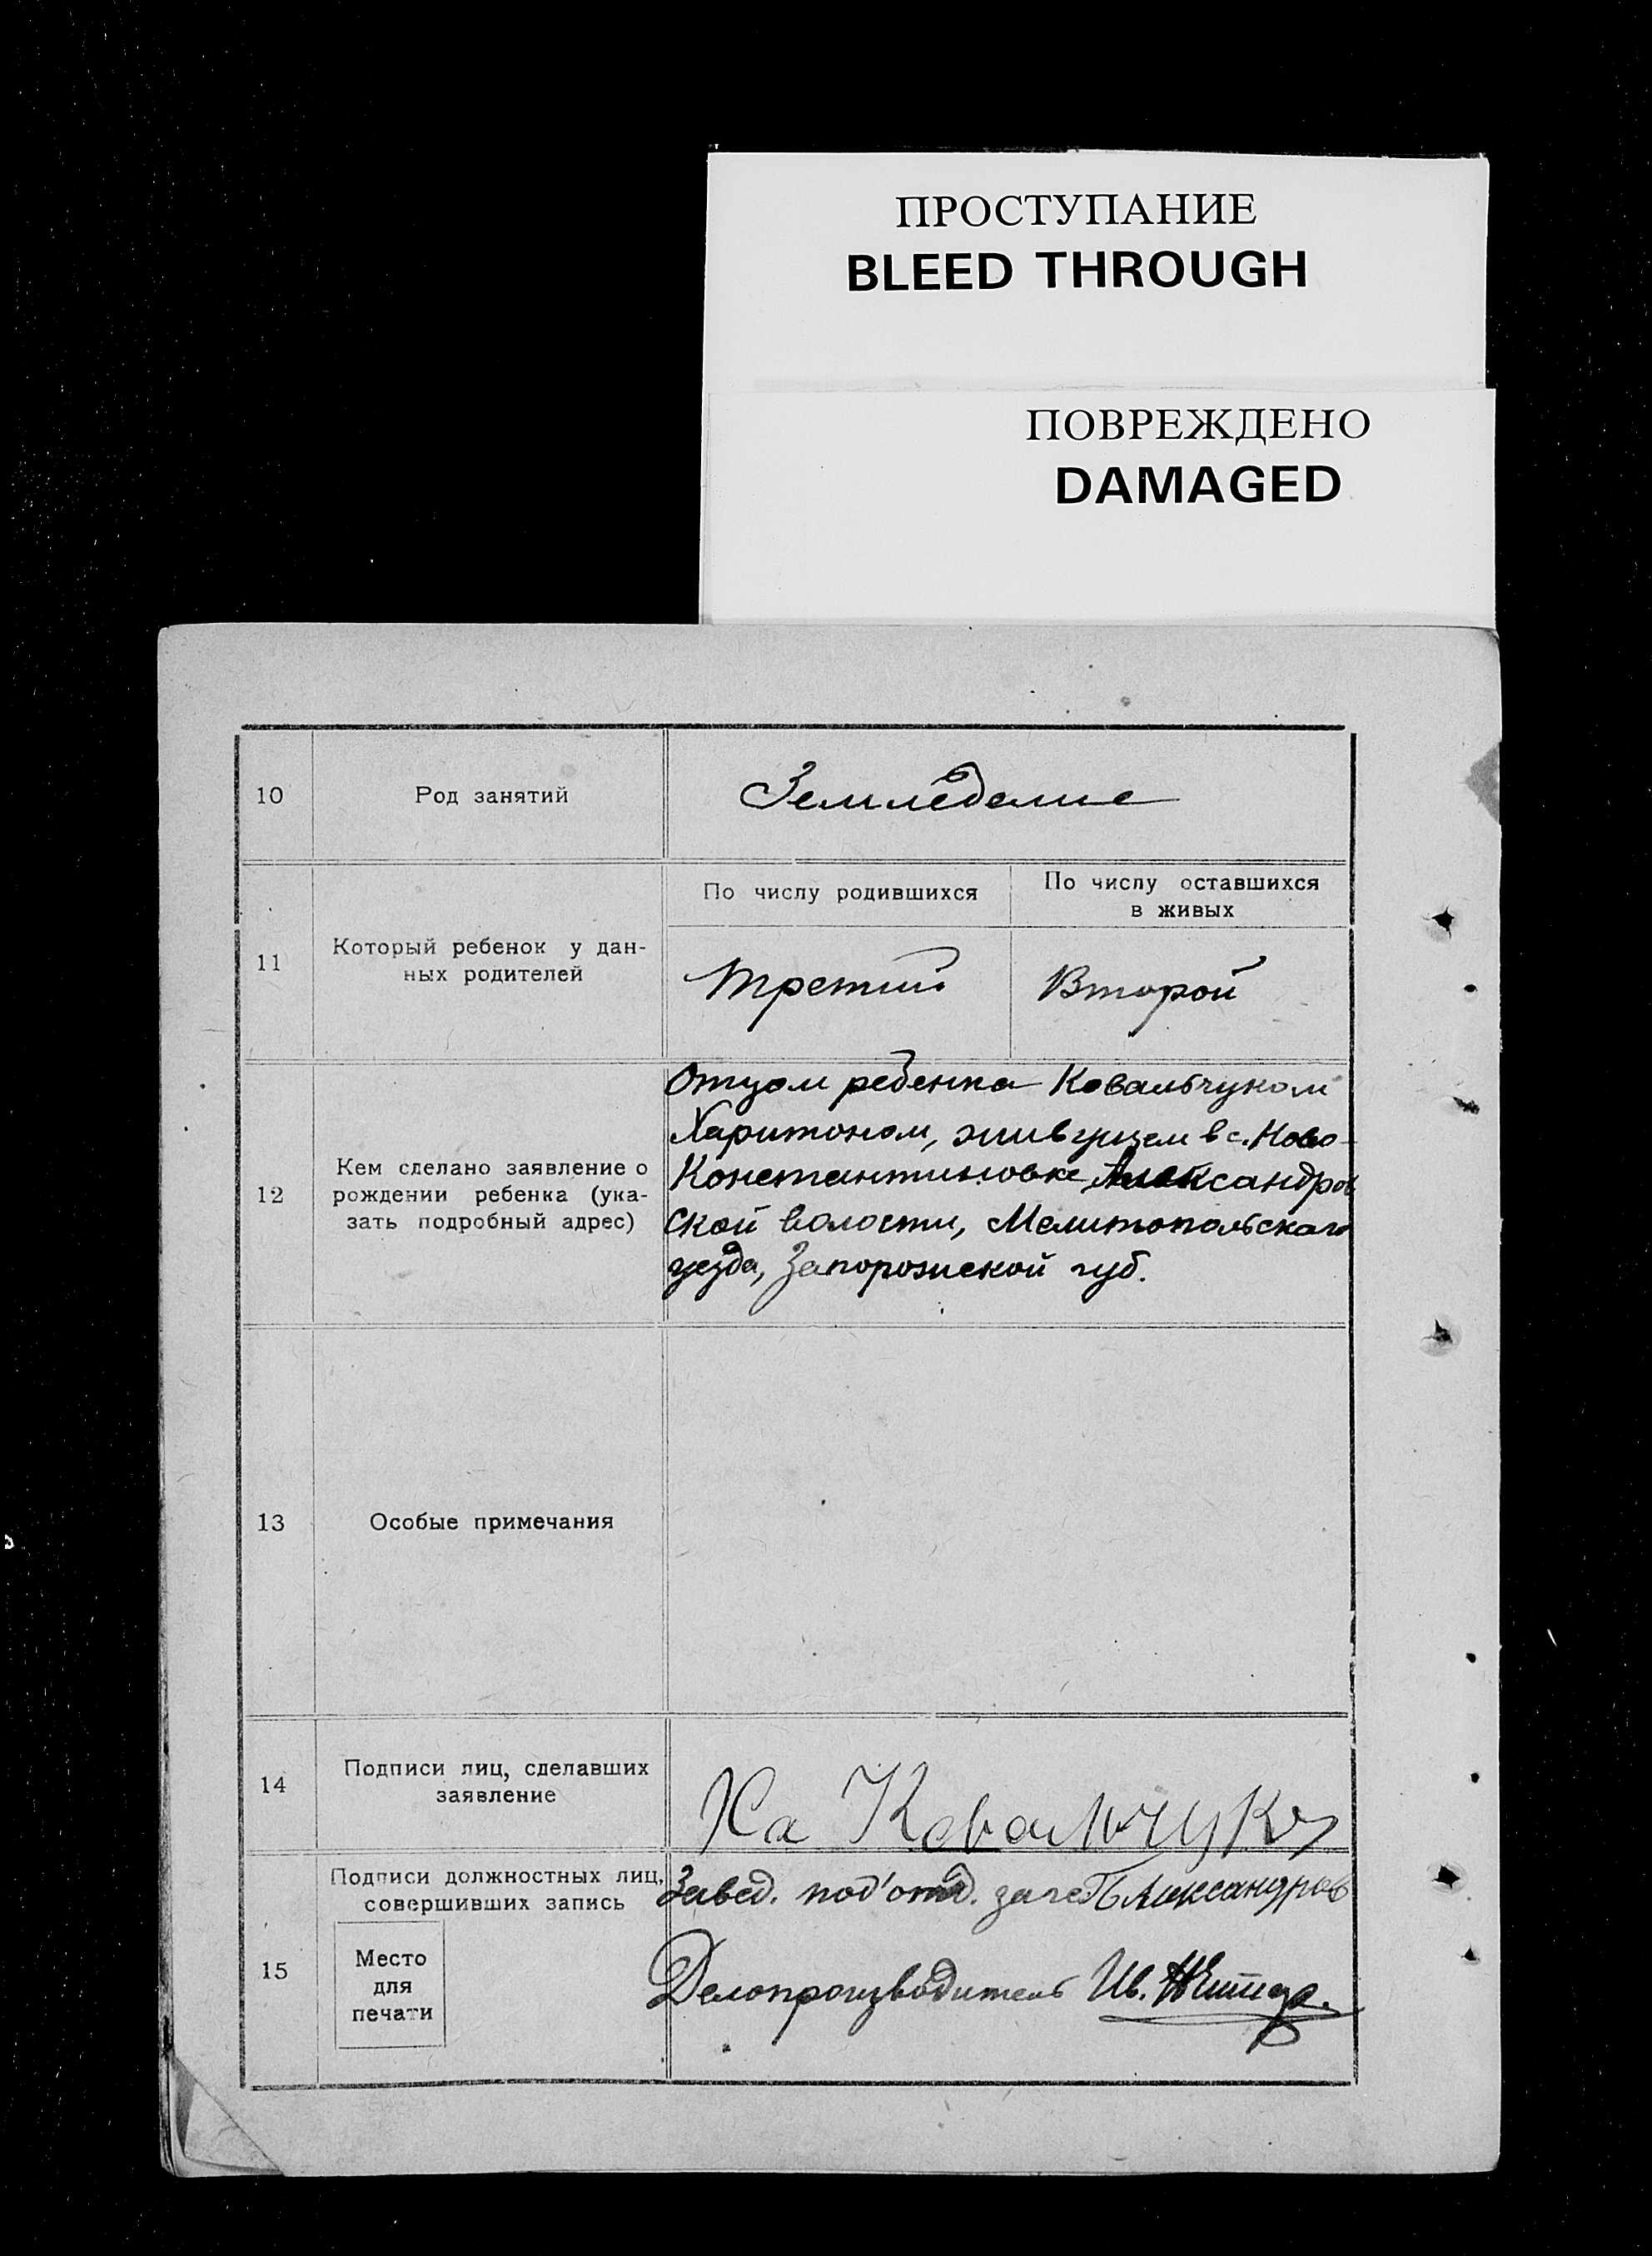 ПРОСТУПАНИЕ
BLEED THROUGH
ПОВРЕЖДЕНО
DAMAGED
10
Род занятий
Земледелие
11
Который ребенок у дан-
ных родителей
По числу родившихся
По числу оставшихся
в живых
третий
Второй
12
Кем сделано заявление о
рождении ребенка (ука-
зать подробный адрес)
Отцом ребенка Ковальчуком
Харитоном, живущем в с. Ново-
Константиновке, Александров
ской волости, Мелитопольскаго
уезда, Запорожской губ.
13
Особые примечания
14
Подписи лиц, сделавших
заявление
Ха Ковальчук
Подписи должностных лиц,
совершивших запись
15
Место
для
печати
Завед. под'отд. Александров
Делопроизводитель Ив.